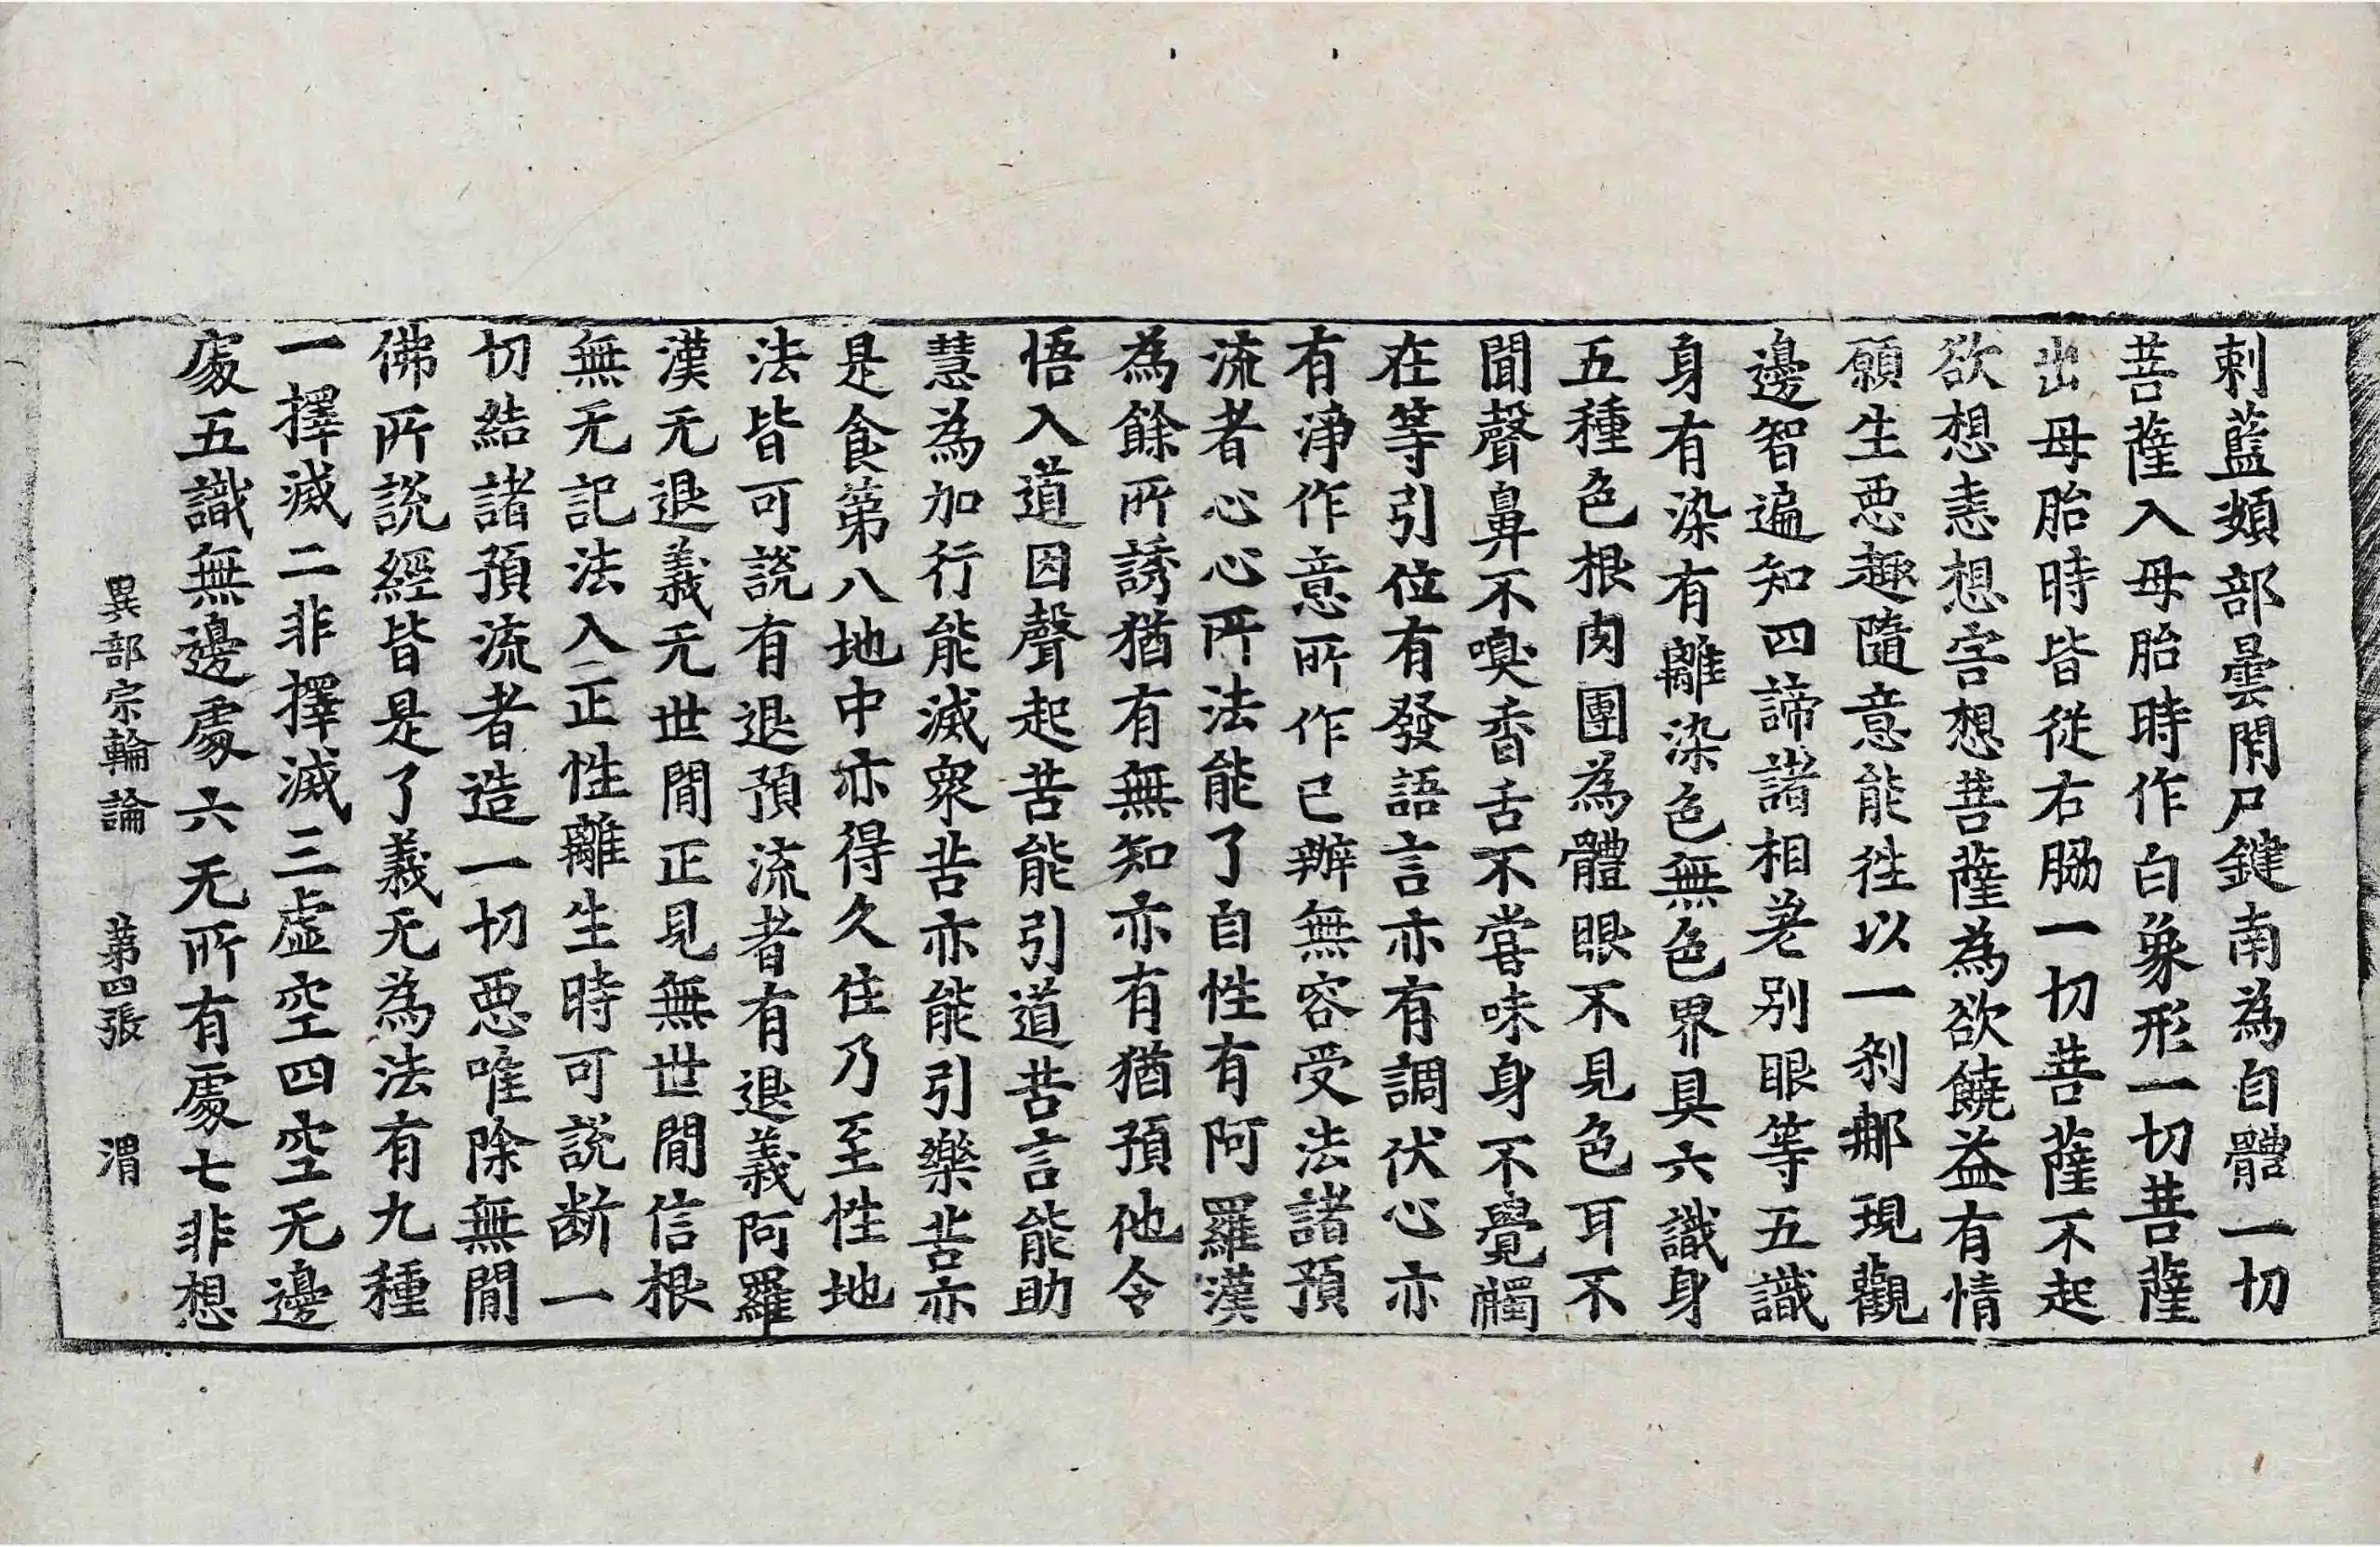 剌藍頞部曇閇尸鍵南為自體一切
菩薩入母胎時作白象形一切菩薩
出母胎時皆從右脇一切菩薩不起
欲想恚想害想菩薩為欲饒益有情
願生惡趣隨意能往以一剎那現觀
邊智遍知四諦諸相差別眼等五識
身有染有離染色無色界具六識身
五種色根肉團為體眼不見色耳不
聞聲鼻不嗅香舌不甞味身不覺觸
在等引位有發語言亦有調伏心亦
有淨作意所作已辦無容受法諸預
流者心心所法能了自性有阿羅漢
為餘所誘猶有無知亦有猶預他令
悟入道因聲起苦能引道苦言能助
慧為加行能滅衆苦亦能引樂苦亦
是食第八地中亦得久住乃至性地
法皆可說有退預流者有退義阿羅
漢无退義无世間正見無世間信根
無无記法入正性離生時可說断一
切結諸預流者造一切惡唯除無間
佛所說經皆是了義无為法有九種
一擇滅二非擇滅三虛空四空无邊
處五識無邊處六无所有處七非想
異部宗輪論 第四張 渭